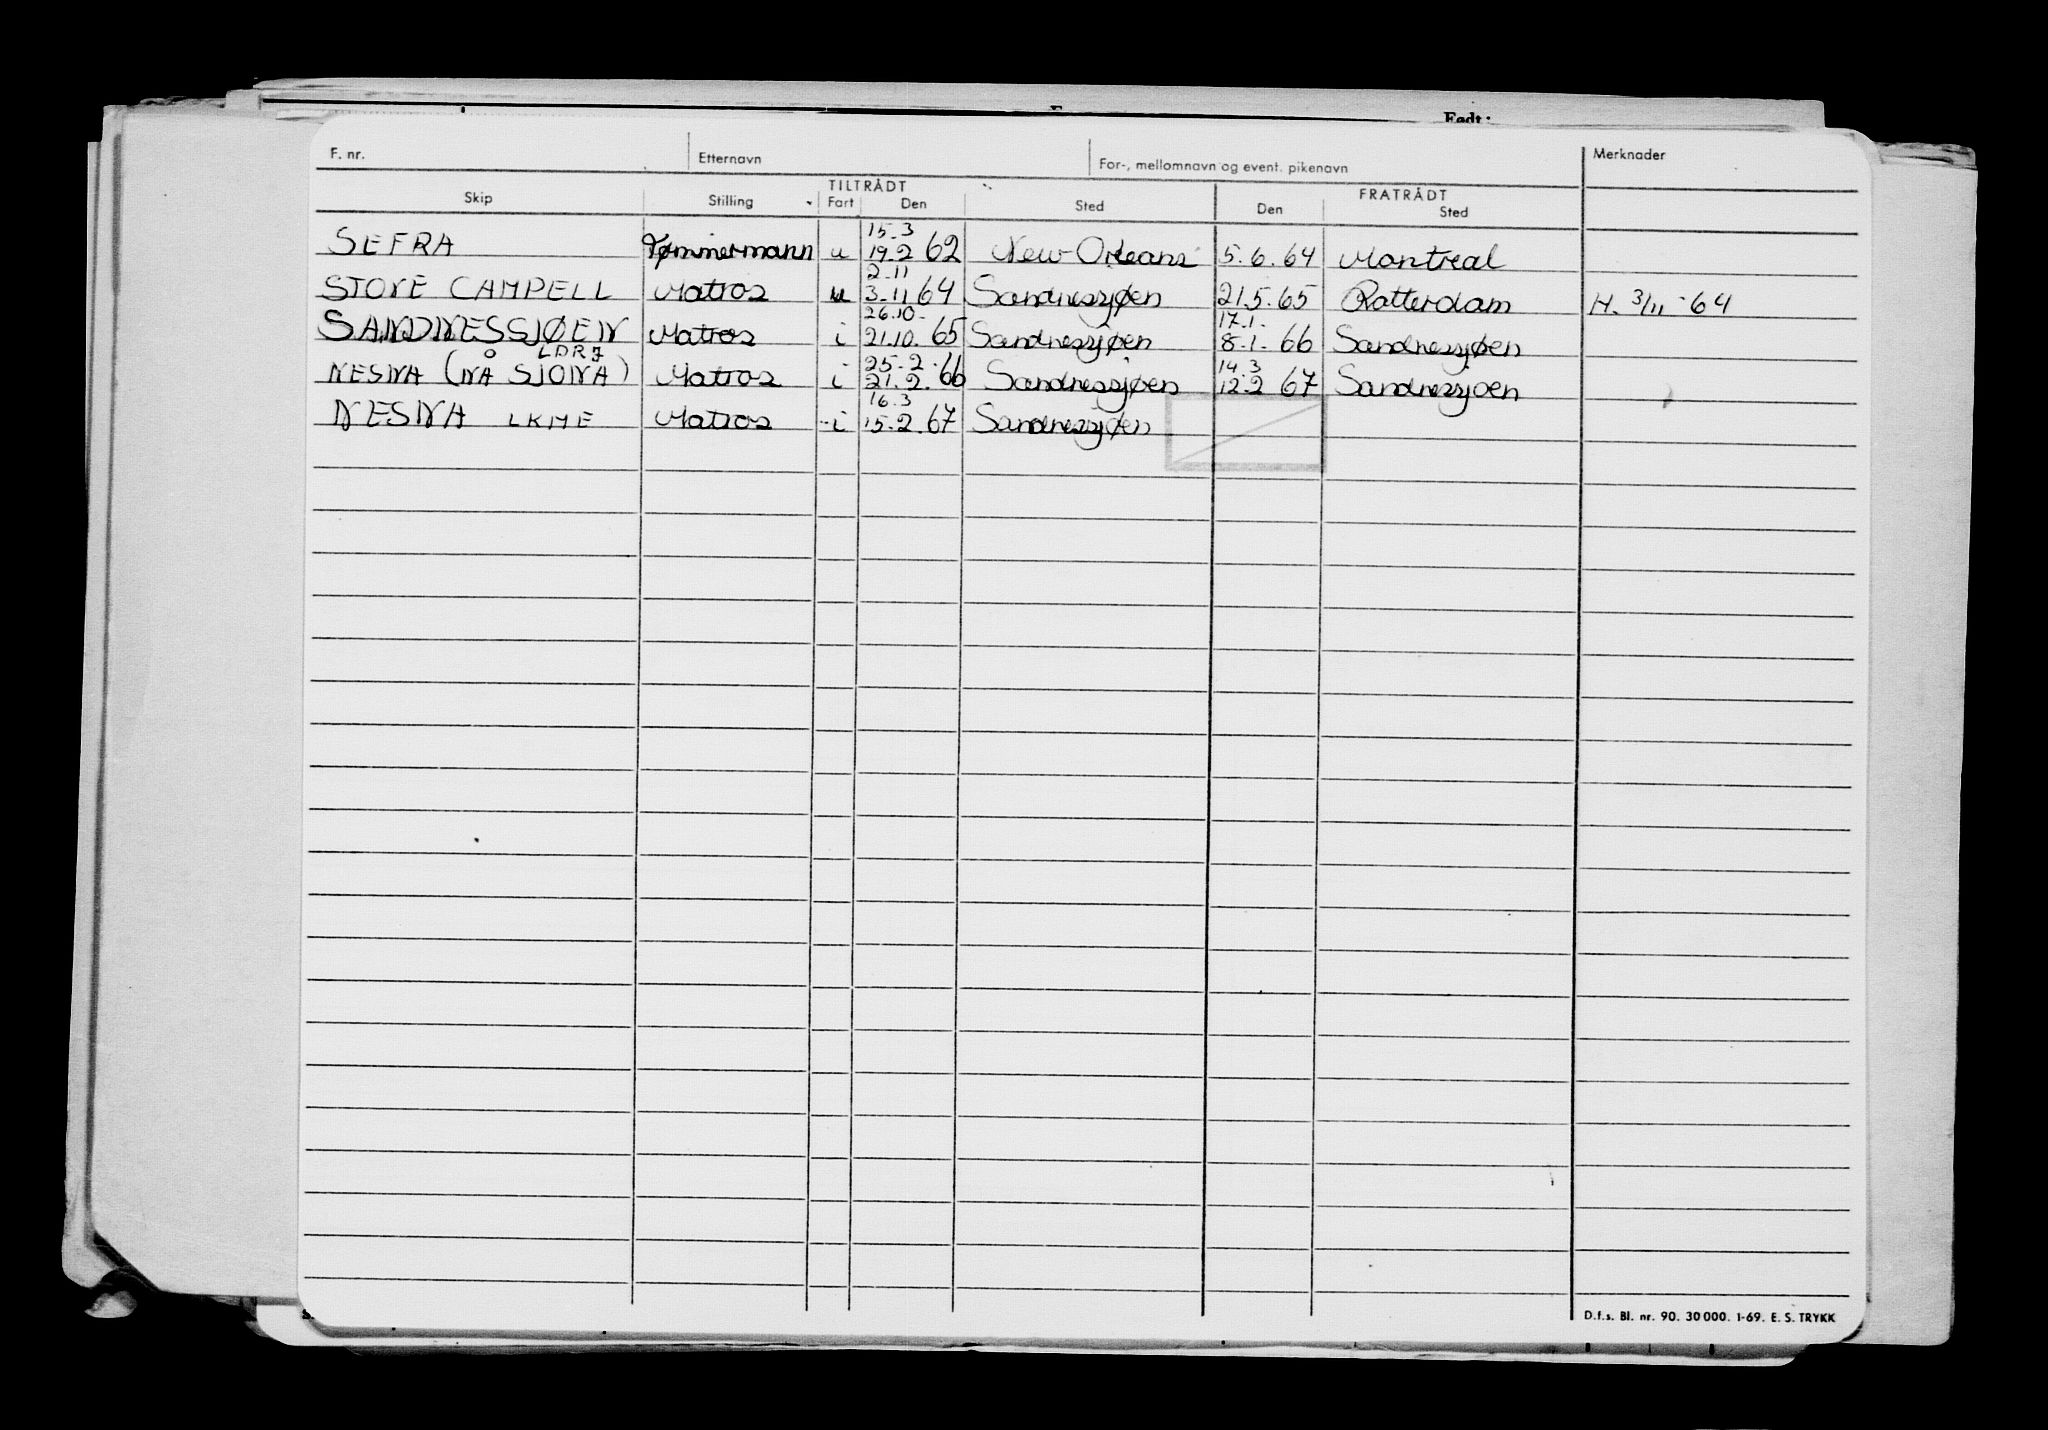 Født:
F. nr. Etternavn For-, mellomnavn og event. pikenavn Merknader
TILTRÅDT FRATRÅDT
Skip Stilling Fart Den Sted Den Sted
15.3
SEFRA Tømmermann u 19.2 62 New-Orleans 5.6.64 Montreal
2.11
STOVE CAMPELL Matros u 3.11 64 Sandnessjøen 21.5.65 Rotterdam H. 3/11-64
26.10. 17.1.
SANDNESSJØEN Matros i 21.10. 65 Sandnessjøen 8.1. 66 Sandnessjøen
LDRJ 25.2. 14.3
NESNA (NÅ SJONA) Matros i 21.2.66 Sandnessjøen 12.2 67 Sandnessjoen
16.3
NESNA LKME Matros i 15.2.67 Sandnessjøen
D.f.s. Bl. nr. 90. 30 000. 1-69. E. S. TRYKK